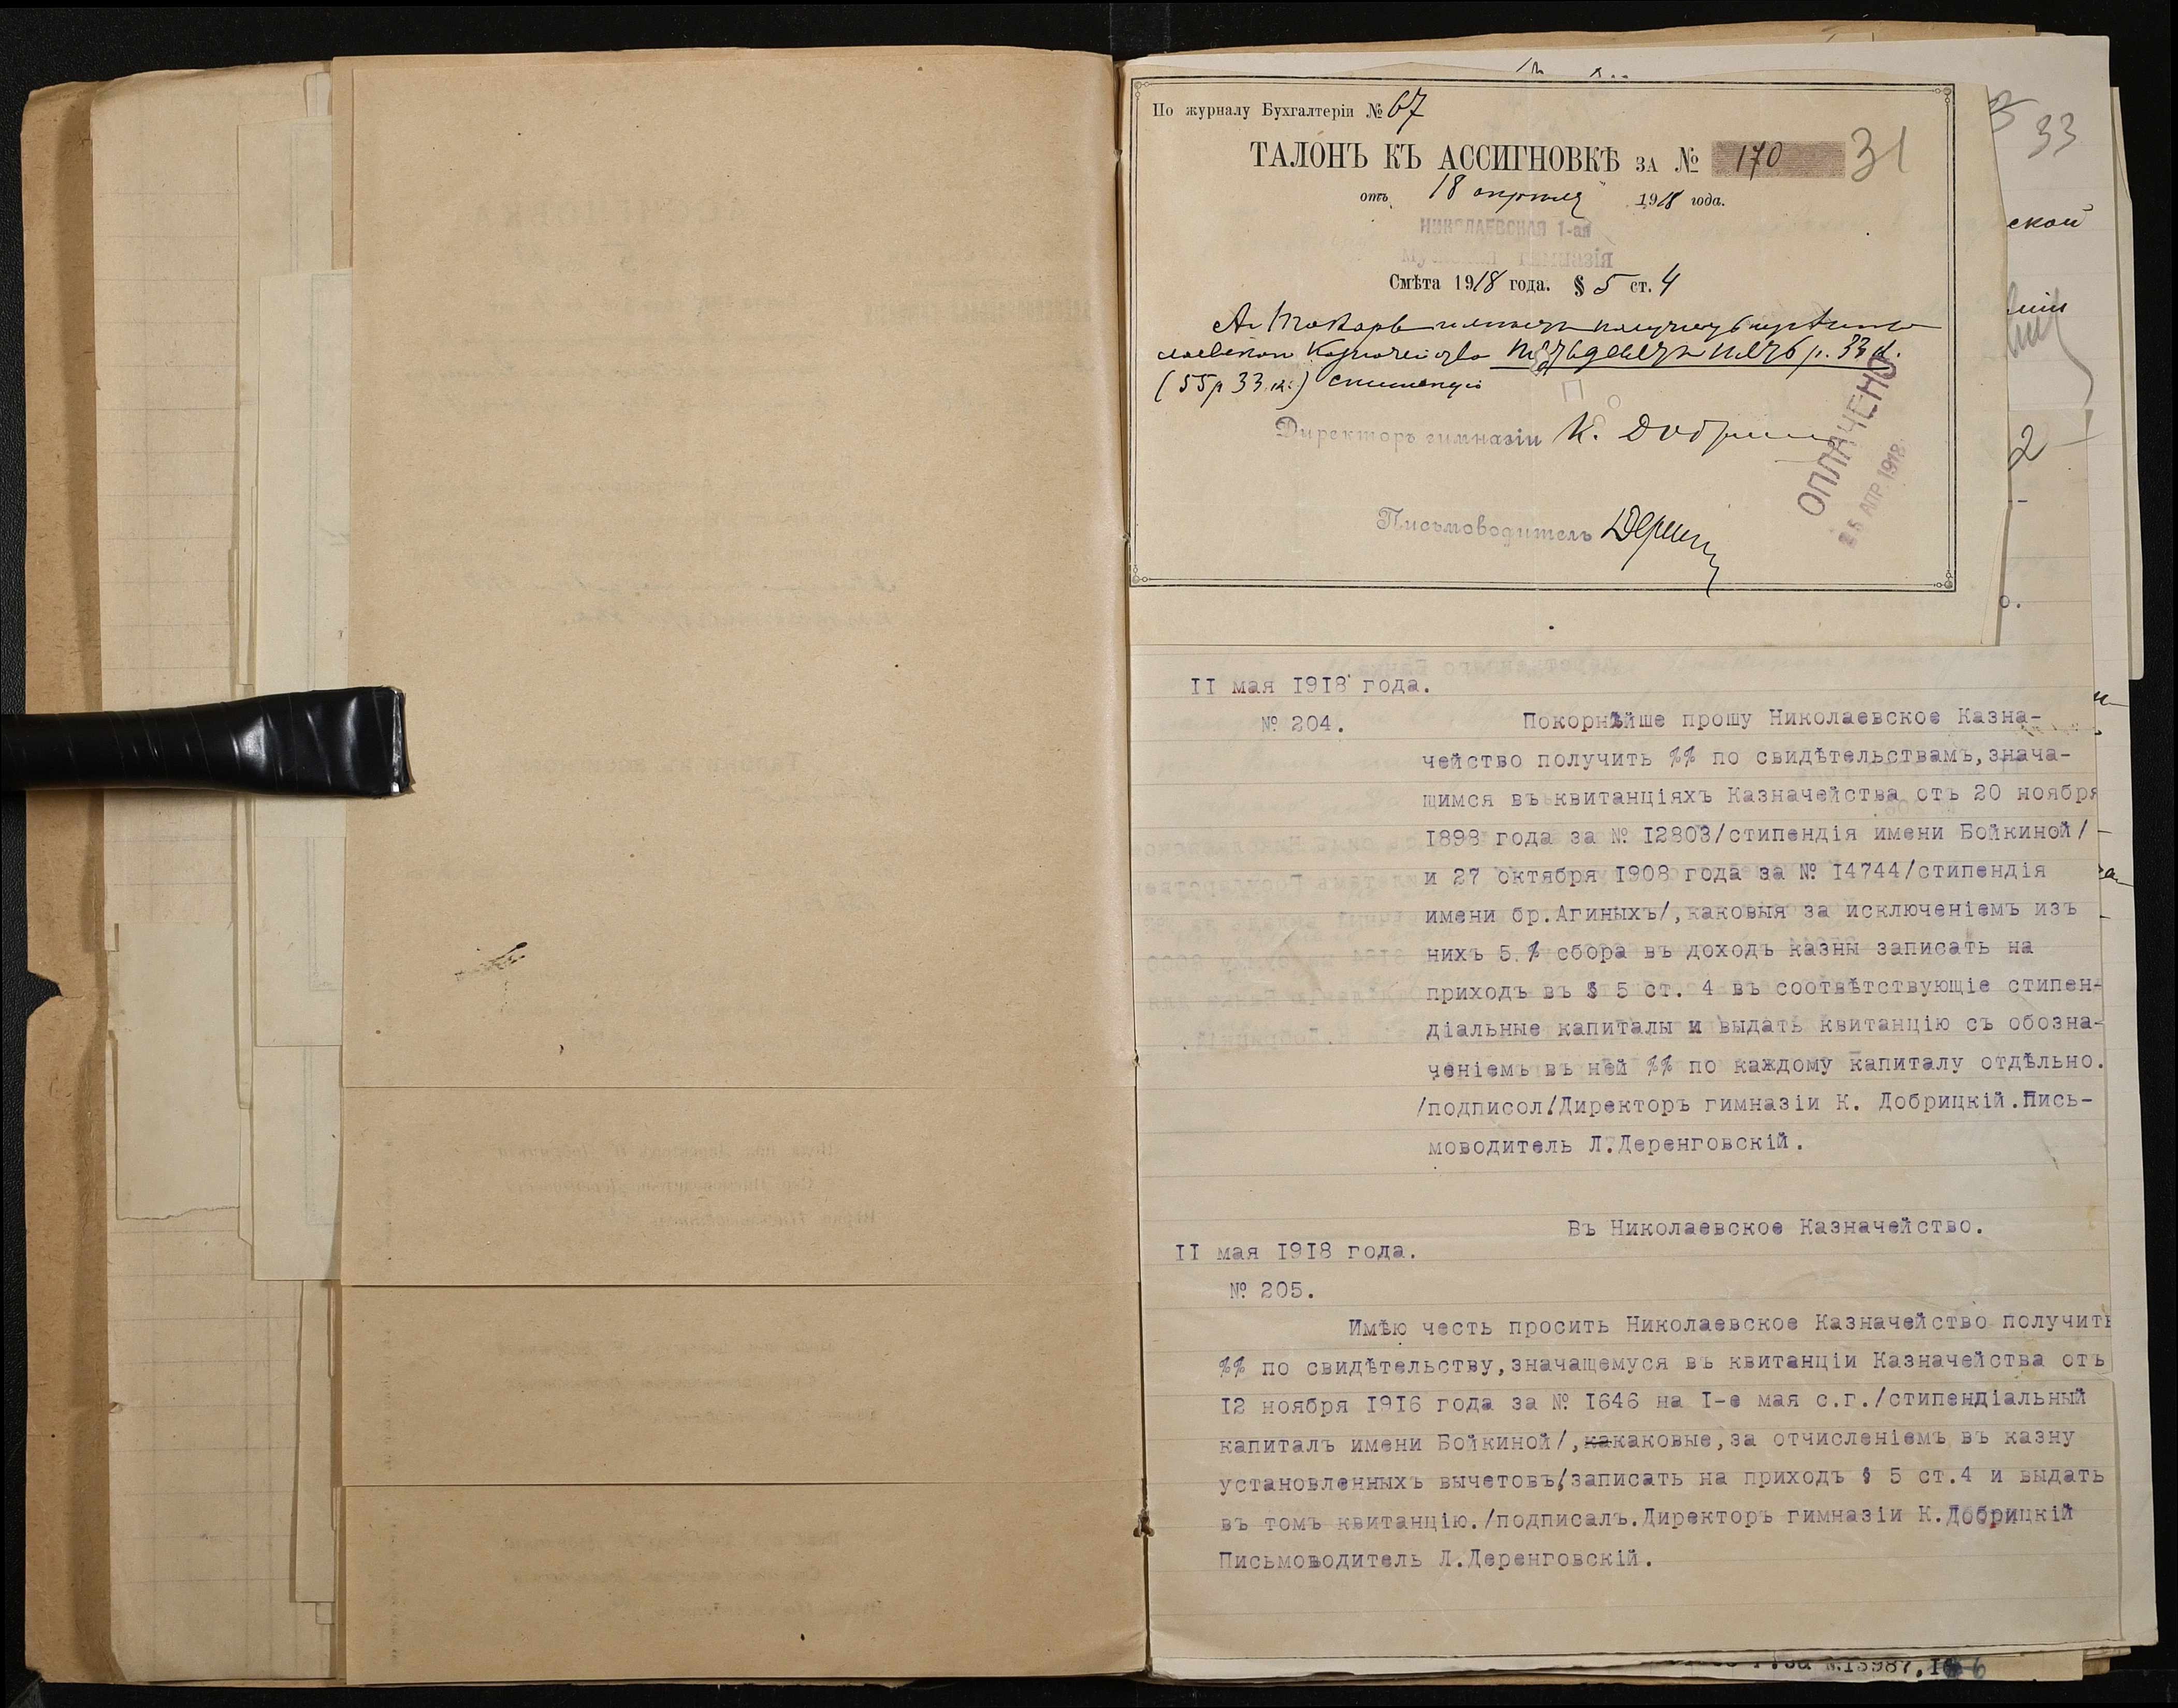 По журналу Бухгалтеріи № 67
ТАЛОНЪ КЪ АССИГНОВКѢ ЗА № 170
31
отъ 18 апрѣля 1918 года.
НИКОЛАЕВСКАЯ 1-ая
Мужская гимназія
Смѣта 1918 года. § 5 ст. 4
получить
Казначейства пятьдесятъ пять р. 33 к.
(55 р 33 к.) стипендію
Директоръ гимназіи К. Добрицкій
ОПЛАЧЕНО
25 АПР. 1918
Письмоводитель
33
ской
2
11 мая 1918 года.
№ 204.
Покорнѣйше прошу Николаевское Казна-
чейство получить %% по свидѣтельствамъ,знача-
щимся въ квитанціяхъ Казначейства отъ 20 ноября
1898 года за № 12803/стипендія имени Бойкиной/
и 27 октября 1908 года за № 14744/стипендія
имени бр.Агиныхъ/,каковыя за исключеніемъ изъ
нихъ 5.% сбора въ доходъ казны записать на
приходъ въ § 5 ст. 4 въ соотвѣтствующіе стипен-
діальные капиталы и выдать квитанцію съ обозна-
ченіемъ въ ней %% по каждому капиталу отдѣльно.
/подписол/Директоръ гимназіи К. Добрицкій.Пись-
моводитель Л.Деренговскій.
Въ Николаевское Казначейство.
11 мая 1918 года.
№ 205.
Имѣю честь просить Николаевское Казначейство получить
%% по свидѣтельству,значащемуся въ квитанціи Казначейства отъ
12 ноября 1916 года за № 1646 на 1-е мая с.г./стипендіальный
капиталъ имени Бойкиной/,какаковые,за отчисленіемъ въ казну
установленныхъ вычетовъ,/записать на приходъ § 5 ст.4 и выдать
въ томъ квитанцію./подписалъ.Директоръ гимназіи К.Добрицкій
Письмоводитель Л.Деренговскій.